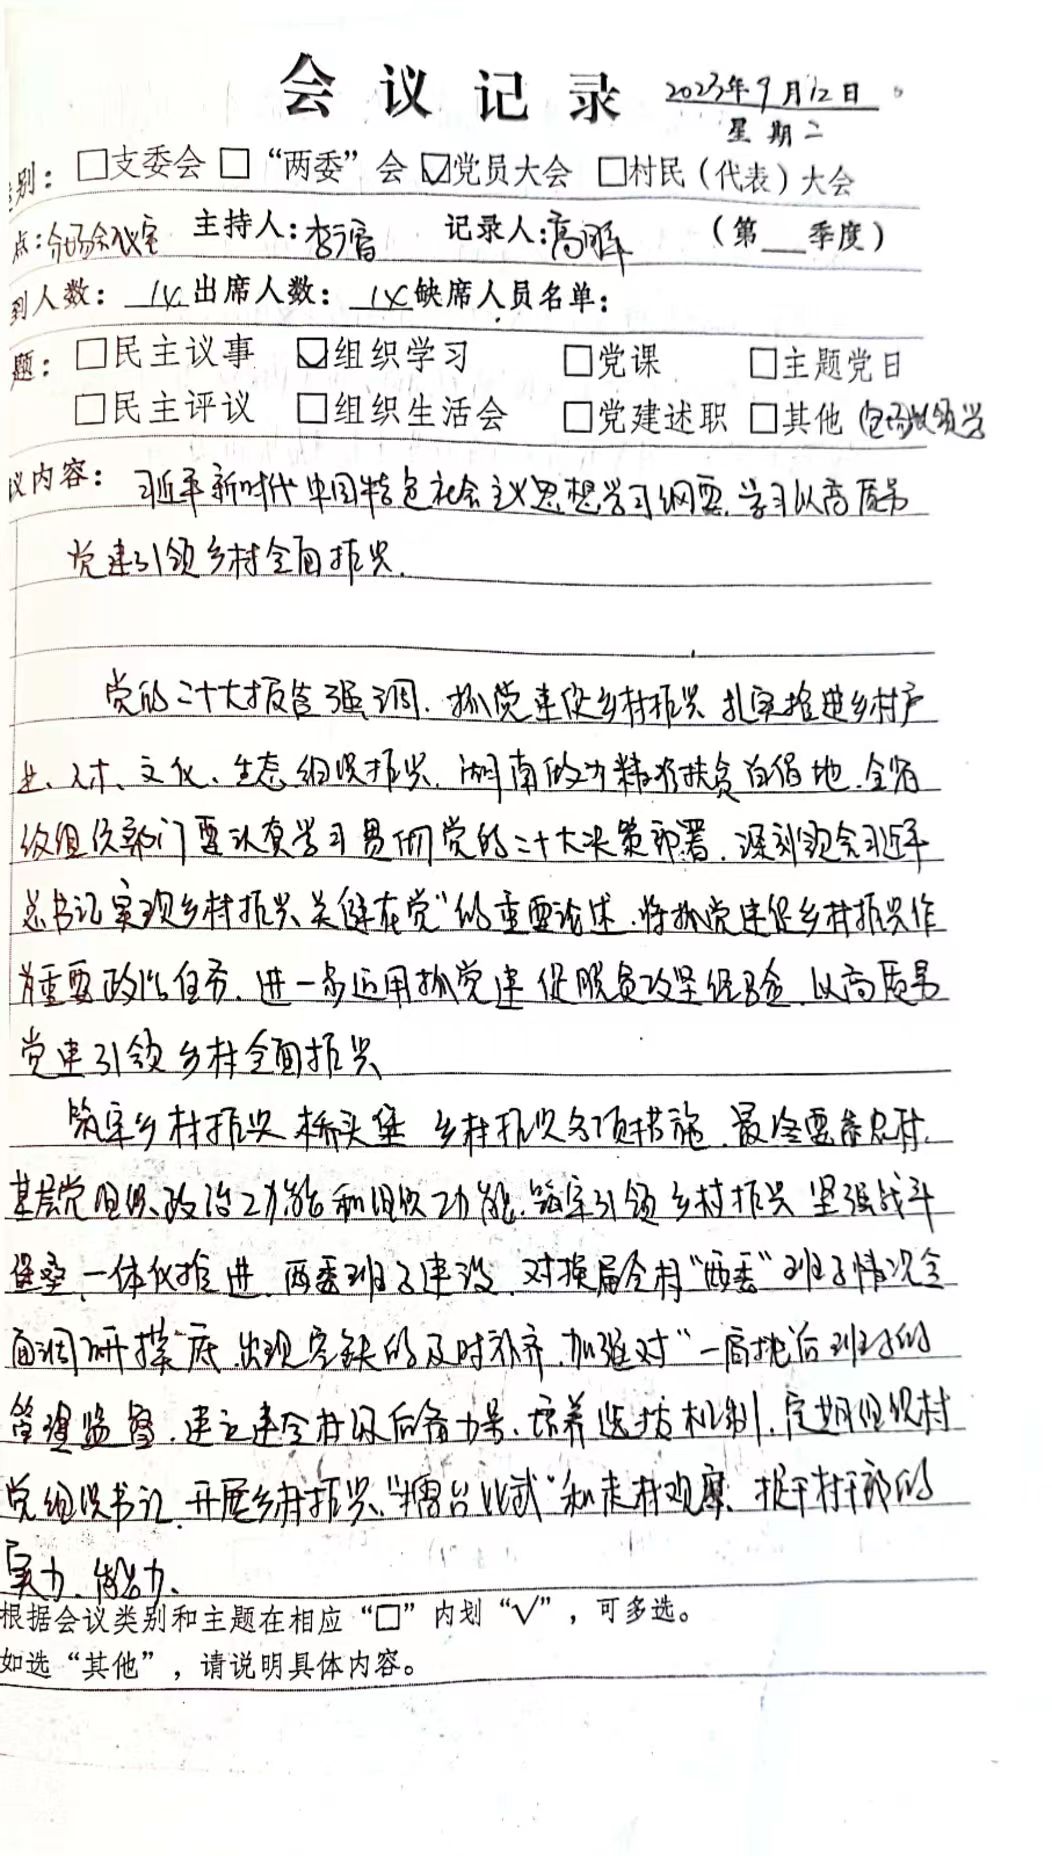 会议记录 2023年9月12日
星期二
别：□支委会 □“两委”会 ☑党员大会 □村民（代表）大会
点：分场会议室 主持人： 记录人： （第 季度）
到人数： 出席人数： 缺席人员名单：
题：□民主议事 ☑组织学习 □党课 □主题党日
□民主评议 □组织生活会 □党建述职 □其他
议内容：习近平新时代中国特色社会主义思想学习纲要、学习以高质量
党建引领乡村全面振兴.
党的二十大报告强调，抓党建促乡村振兴 扎实推进乡村产
业、人才、文化、生态、组织振兴，湖南的为精准扶贫首倡地，全省
级组织部门要认真学习贯彻党的二十大决策部署，深刻领会习近平
总书记实现乡村振兴、关键在党”的重要论述，将抓党建促乡村振兴作
为重要政治任务，进一步运用抓党建促脱贫攻坚经验，以高质量
党建引领乡村全面振兴
筑牢乡村振兴桥头堡 乡村振兴各项措施，最终要靠农村
基层党组织、政治功能和组织功能，筑牢引领乡村振兴坚强战斗
堡垒，一体化推进，两委班子建设，对换届全村“两委”班子情况全
面调研摸底，出现空缺的及时补齐，加强对“一肩挑后班子的
管理监督，建立健全村级后备力量、培养选拔机制，定期组织村
党组织书记，开展乡村振兴、“擂台比武”和走村观摩，提干村干部的
实力、能力、
根据会议类别和主题在相应“□”内划“√”，可多选。
如选“其他”，请说明具体内容。